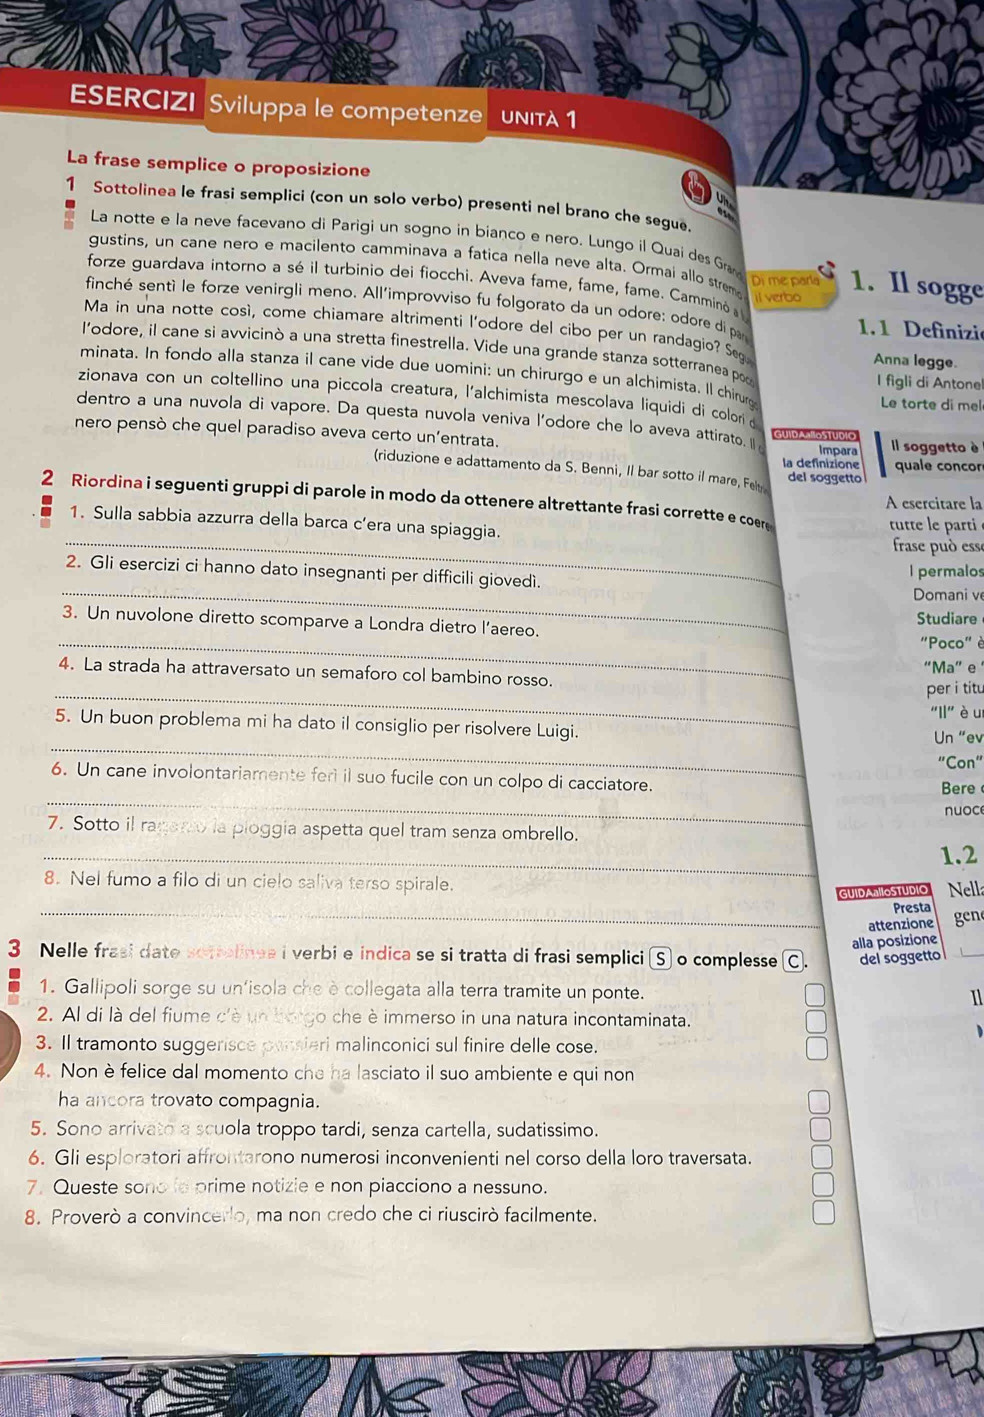 ESERCIZI Sviluppa le competenze UNITÀ 1
La frase semplice o proposizione
1 Sottolinea le frasi semplici (con un solo verbo) presenti nel brano che segue.
La notte e la neve facevano di Parigi un sogno in bianco e nero. Lungo il Quai des
gustins, un cane nero e macilento camminava a fatica nella neve alta. Ormai allo
forze guardava intorno a sé il turbinio dei fiocchi. Aveva fame, fame, fame. Camminò
finché sentì le forze venirgli meno. All'improvviso fu folgorato da un odore: odore di
Ma in una notte così, come chiamare altrimenti l'odore del cibo per un randagio?
l'odore, il cane si avvicinò a una stretta finestrella. Vide una grande stanza sotterranea
minata. In fondo alla stanza il cane vide due uomini: un chirurgo e un alchimista. Il
zionava con un coltellino una piccola creatura, l'alchimista mescolava liquidi di colori
dentro a una nuvola di vapore. Da questa nuvola veniva l'odore che lo aveva attirato. Il
nero pensò che quel paradiso aveva certo un'entrata.
(riduzione e adattamento da S. Benni, Il bar sotto il mare,
2 Riordina i seguenti gruppi di parole in modo da ottenere altrettante frasi corrette e
1. Sulla sabbia azzurra della barca c'era una spiaggia.
2. Gli esercizi ci hanno dato insegnanti per difficili giovedì.
3. Un nuvolone diretto scomparve a Londra dietro l'aereo.
4. La strada ha attraversato un semaforo col bambino rosso.
5. Un buon problema mi ha dato il consiglio per risolvere Luigi.
6. Un cane involontariamente ferì il suo fucile con un colpo di cacciatore.
7. Sotto il ragazzo la pioggia aspetta quel tram senza ombrello.
8. Nel fumo a filo di un cielo saliva terso spirale.
3 Nelle frasi date sottolinea i verbi e indica se si tratta di frasi semplici S o complesse C.
1. Gallipoli sorge su un'isola che è collegata alla terra tramite un ponte.
2. Al di là del fiume c'è un borgo che è immerso in una natura incontaminata.
3. Il tramonto suggerisce pensieri malinconici sul finire delle cose.
4. Non è felice dal momento che ha lasciato il suo ambiente e qui non
ha ancora trovato compagnia.
5. Sono arrivato a scuola troppo tardi, senza cartella, sudatissimo.
6. Gli esploratori affrontarono numerosi inconvenienti nel corso della loro traversata.
7. Queste sono le prime notizie e non piacciono a nessuno.
8. Proverò a convincerlo, ma non credo che ci riuscirò facilmente.
Di me parla
il verbo
1. Il sogge
1.1 Definizi
Anna legge.
I figli di Antonel
Le torte di mel
GUIDAalloSTUDIO
Impara
la definizione
del soggetto
Il soggetto è
quale concor
A esercitare la
tutte le parti
frase può ess
I permalos
Domani v
Studiare
"Poco" è
"Ma" e "
per i titu
"Il" è u
Un "ev
"Con"
Bere
nuoce
1.2
GUIDAalloSTUDIO
Presta
attenzione
alla posizione
del soggetto
Nell
gen
Il